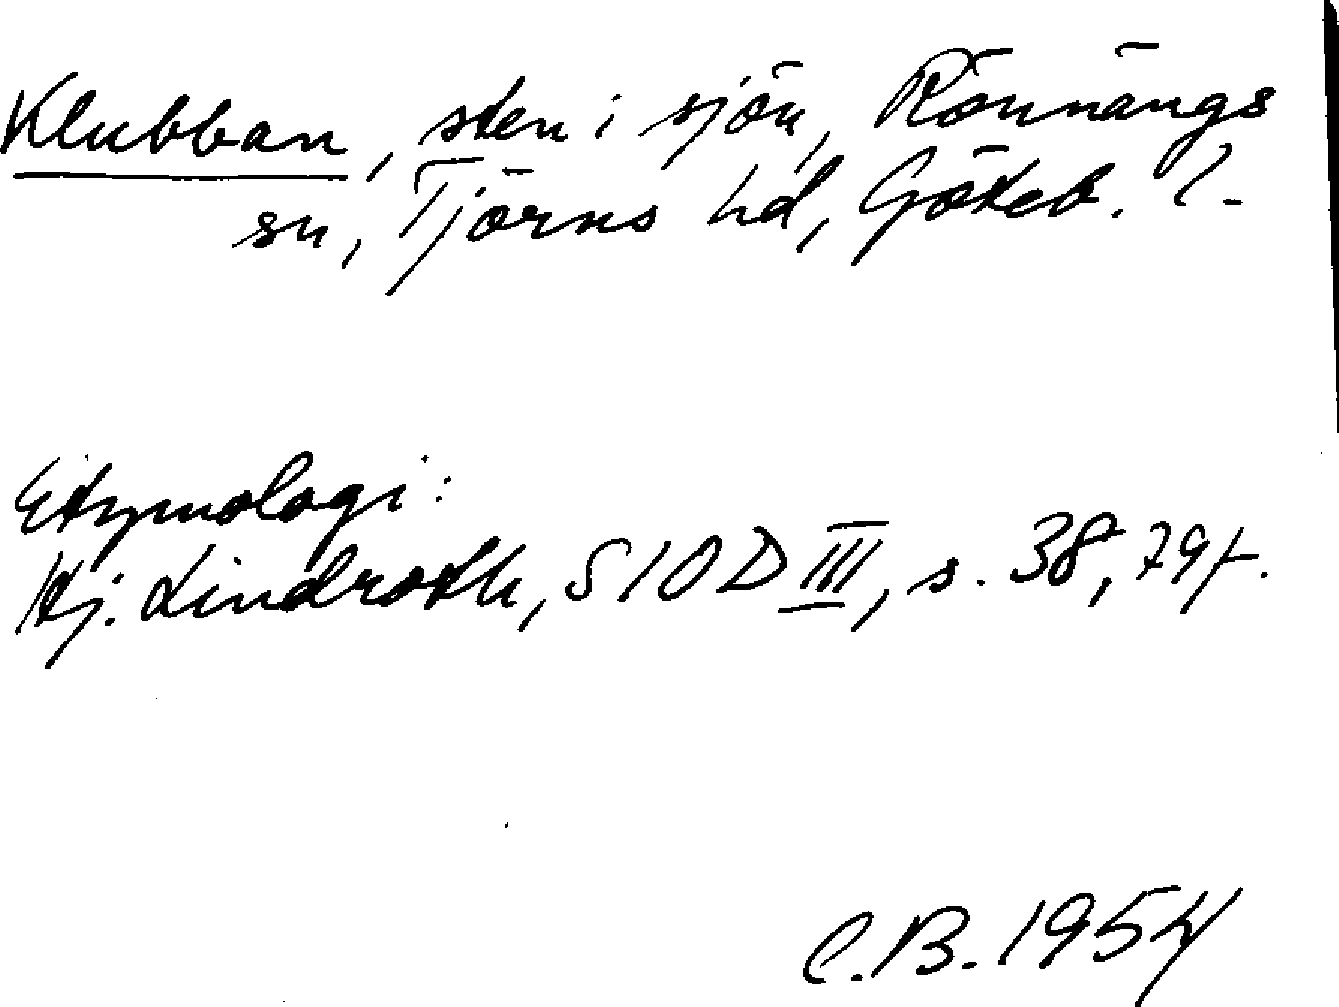 Klubban, sten i sjön, Rönnängs
sn, Tjörns hd, Göteb. l.
Etymologi:
Hj. Lindroth, SIOD III, s. 38, 79f.
C.B. 1954